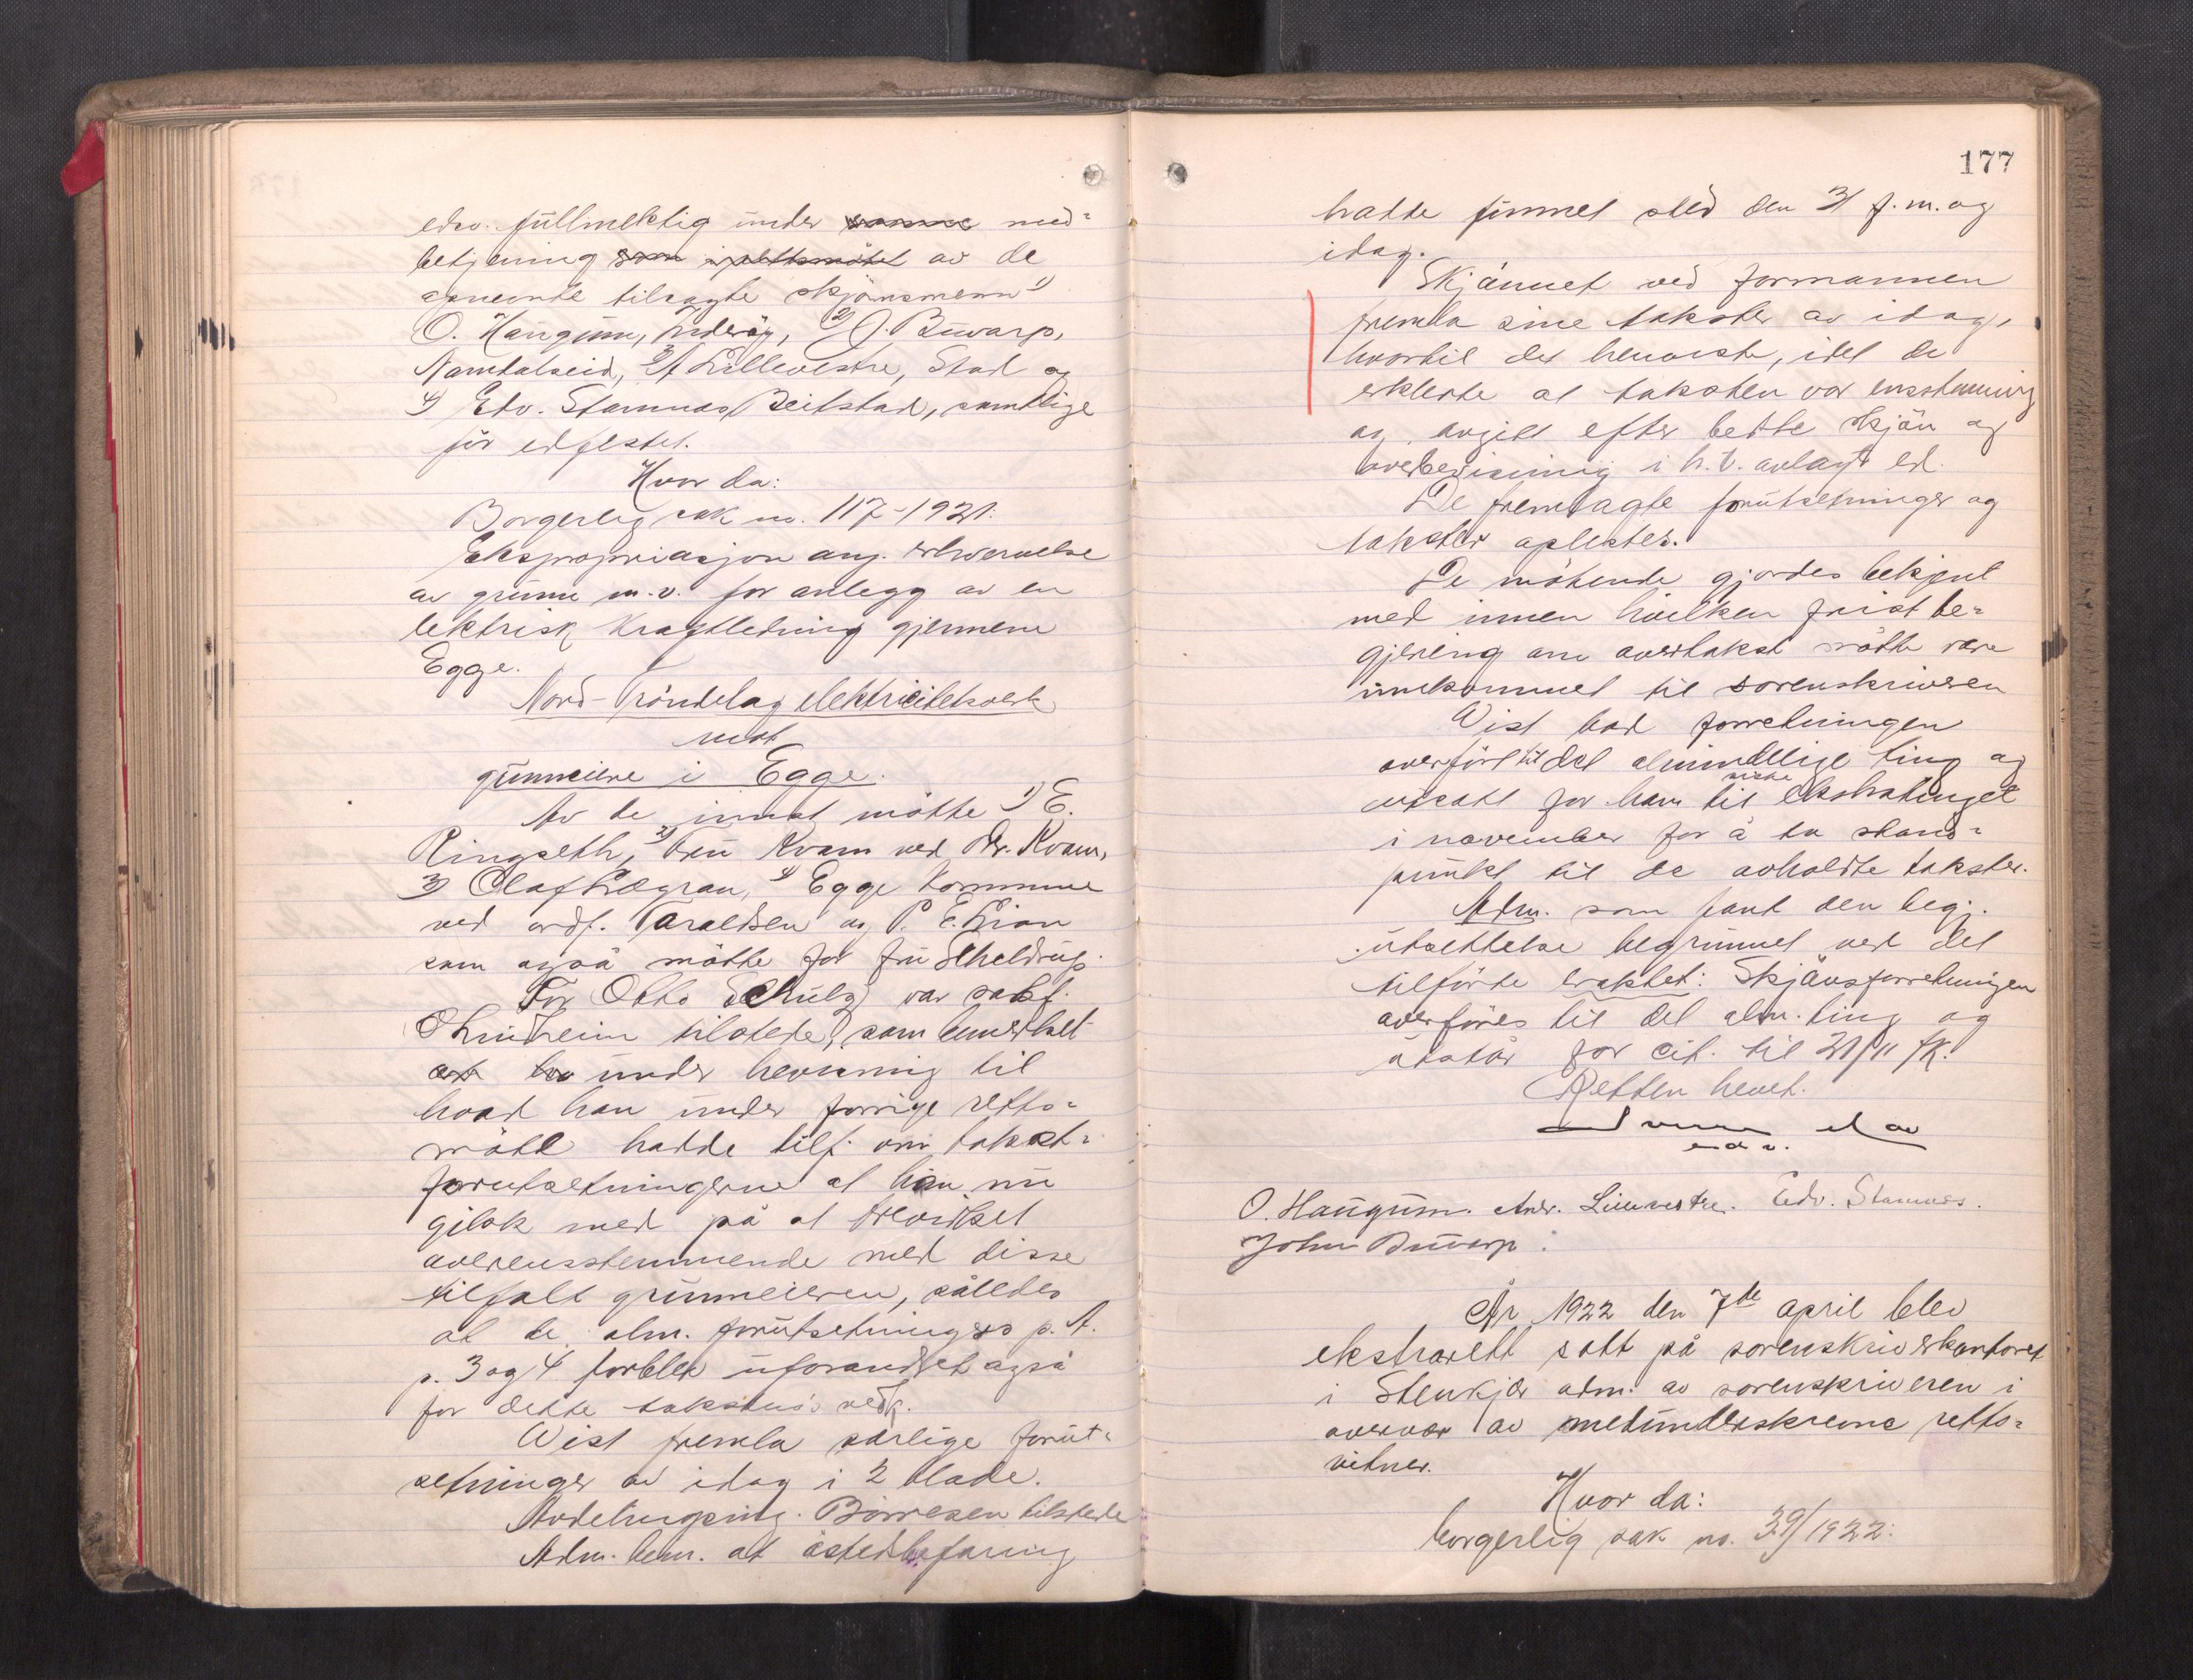 edsv. fullmektig under med-
betjening som i rettsmötet av de
opnevnte tilsagte skjönsmenn 1)
O. Haugum, Inderöy, 2) J. Buvarp,
Namdalseid, 3) A Lillevestre, Stod og
4) Edv. Stamnes, Beitstad, samtlige
för edfestet.
Hvor da:
Borgerlig sak no. 117-1921:
Ekspropriasjon ang. erhvervelse
av grunn m.v. for anlegg av en
lektrisk kraftledning gjennem
Egge.
Nord-Tröndelag elektricitetsverk
mot
grunneiere i Egge.
Av de innst. mötte 1) E.
Ringseth, 2) Fru Kvam ved Dr. Kvam,
3) Olaf Lægran, 4) Egge kommune
ved ordf. Taraldsen og P. E. Lian
som også mötte for fru Scheldrup.
For Otto Schulz var sakf.
O Lindheim tilstede, som bemerket
at under henvisning til
hvad han under forrige retts-
möte hadde tilf. om takst-
forutsetningerne at han nu
gikk med på at trevirket
overensstemmende med disse
tilfalt grunneieren, således
at de alm. forutsetninger p. t.
p. 3 og 4 forblev uforandret også
for dette takstnos vedk.
Wist fremla særlige forut-
setninger av idag i 2 blade.
Avdelingsing. Börresen tilstede
Adm. bem. at åstedbefaring
177
hatte funnet sted den 31 f.m. og
idag.
Skjönnet ved formannen
fremla sine takster av idag,
hvortil der henvistes, idet de
erklerte at taksten var enstemmig
og avgitt efter bedste skjön og
overbevisning i h.t. avlagt ed.
De fremlagte forutsetninger og
takster oplestes.
De mötende gjordes bekjent
med innen hvilken frist be-
gjering om overtakst måtte være
innkommet til sorenskriveren
Wist bad forretningen
overfört til det almindelige ting og
utsatt for ham til næste ekstratinget
i november for å ta stand-
punkt til de avholdte takster.
Adm. som fant den begj.
utsettelse begrunnet ved det
tilförte eraktet: Skjönsforretningen
overföres til det alm. ting og
utstår for cit. til 21/11 fk.
Retten hevet.
edsv.
O. Haugum. Andr. Lillevestre. Edv. Stamnes.
John Buvarp.
År 1922 den 7de april blev
ekstrarett satt på sorenskriverkontoret
i Stenkjer adm. av sorenskriveren i
overvær av medunderskrevne retts-
vitner.
Hvor da:
borgerlig sak no. 39/1922: